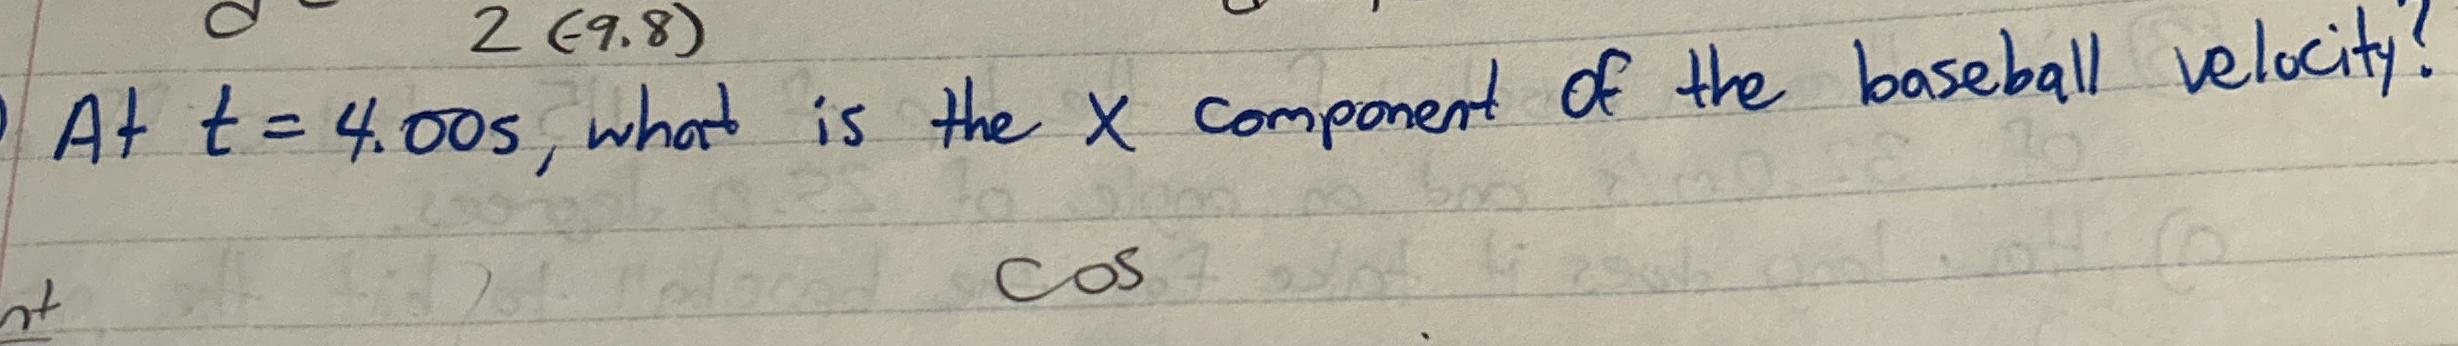 2 (-9.8)
At t = 4.00s, what is the x component of the baseball velocity?
cos
nt